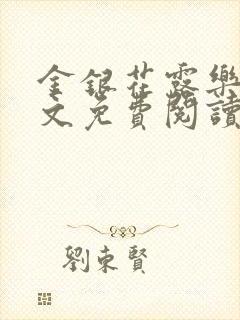 金銀花露樂
文免費閱讀
劉東賢